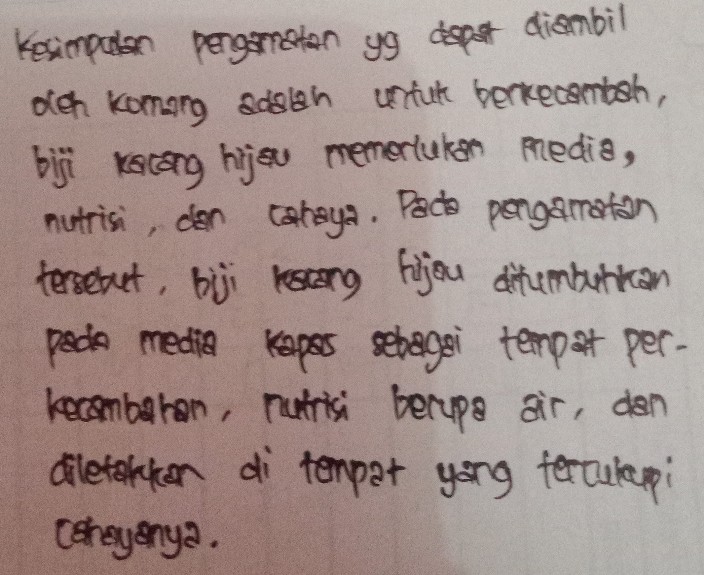 Kesimpulan pengamatan yg dapat diambil
oleh Komang adalah untuk berkecambah,
biji kacang hijau memerlukan media,
nutrisi, dan cahaya. Pada pengamatan
tersebut, biji kacang hijau ditumbuhkan
pada media kapas sebagai tempat per-
kecambahan, nutrisi berupa air, dan
diletakkan di tempat yang tercukupi
cahayanya.